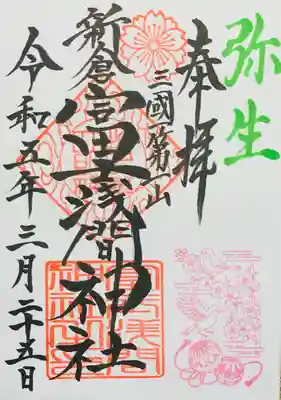 弥生
奉拝
三國第一山
新倉富士浅間神社
令和五年三月二十五日